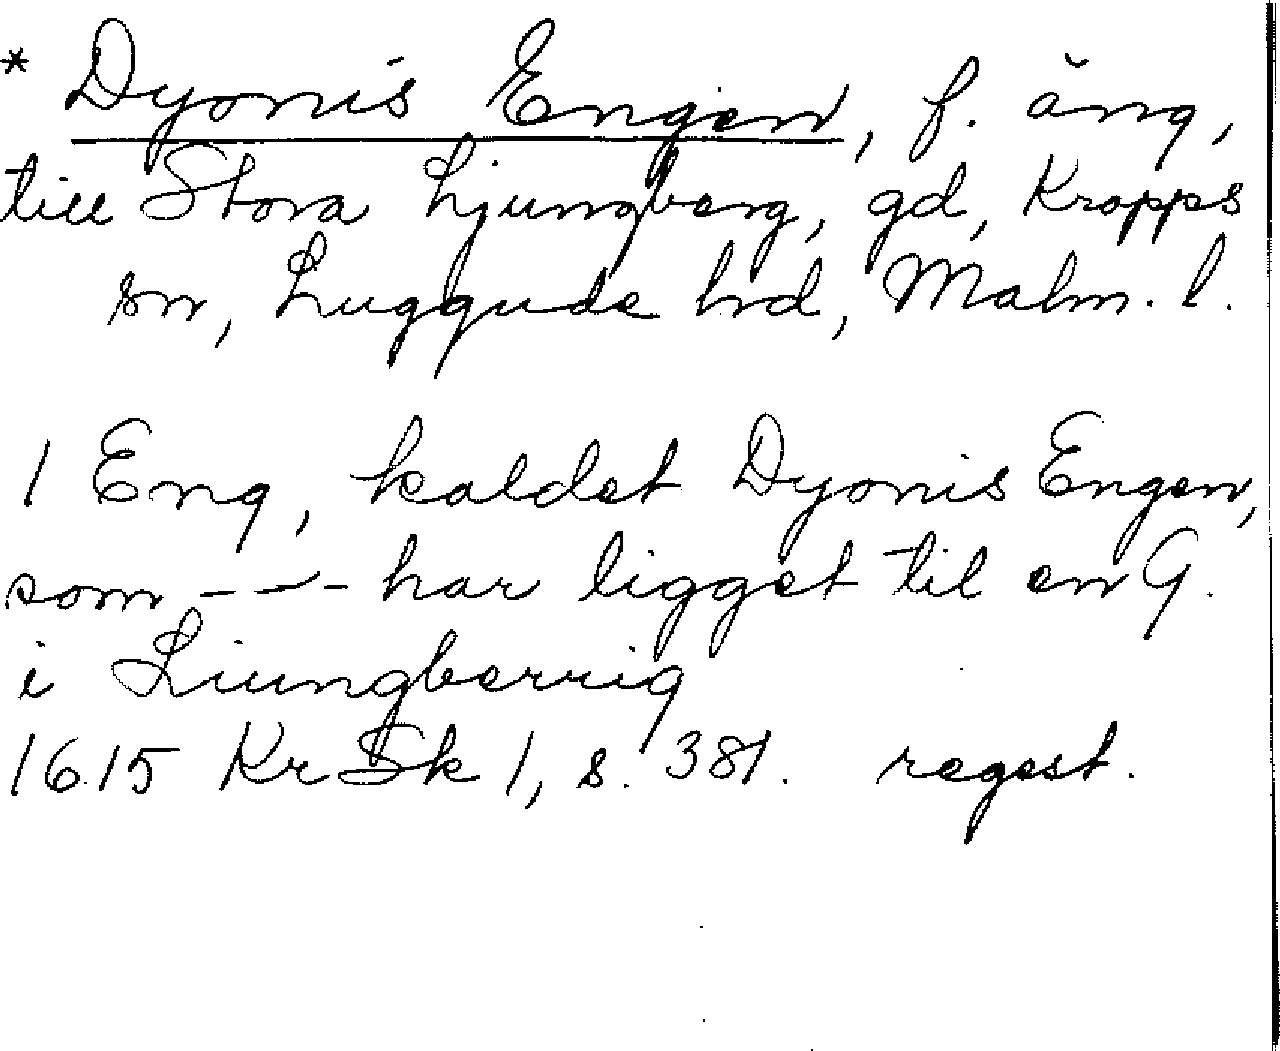 * Dyonis Engen, f. äng,
till Stora Ljungberg, gd, Kropps
sn, Luggude hrd, Malm. l.
1 Eng, kaldet Dyonis Engen,
som --- har ligget til en G.
i Liungberrig
1615 KrSk 1, s. 381. regest.